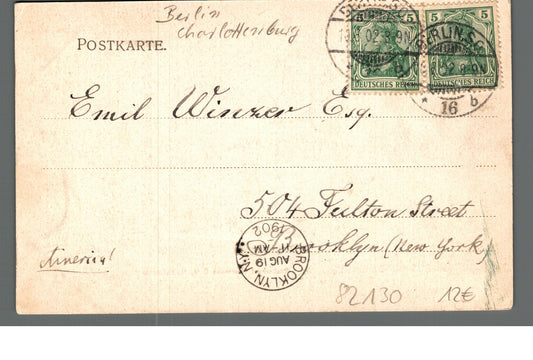 Berlin
Charlottenburg
POSTKARTE.
5 5
DEUTSCHES REICH
5 5
DEUTSCHES REICH
BERLIN S.W.
02.8-9N
* 16 b
Emil Winzer Esq.
504 Fulton Street
Brooklyn (New York)
America!
BROOKLYN, N.Y.
AUG 19
11 AM
1902
82130
12€